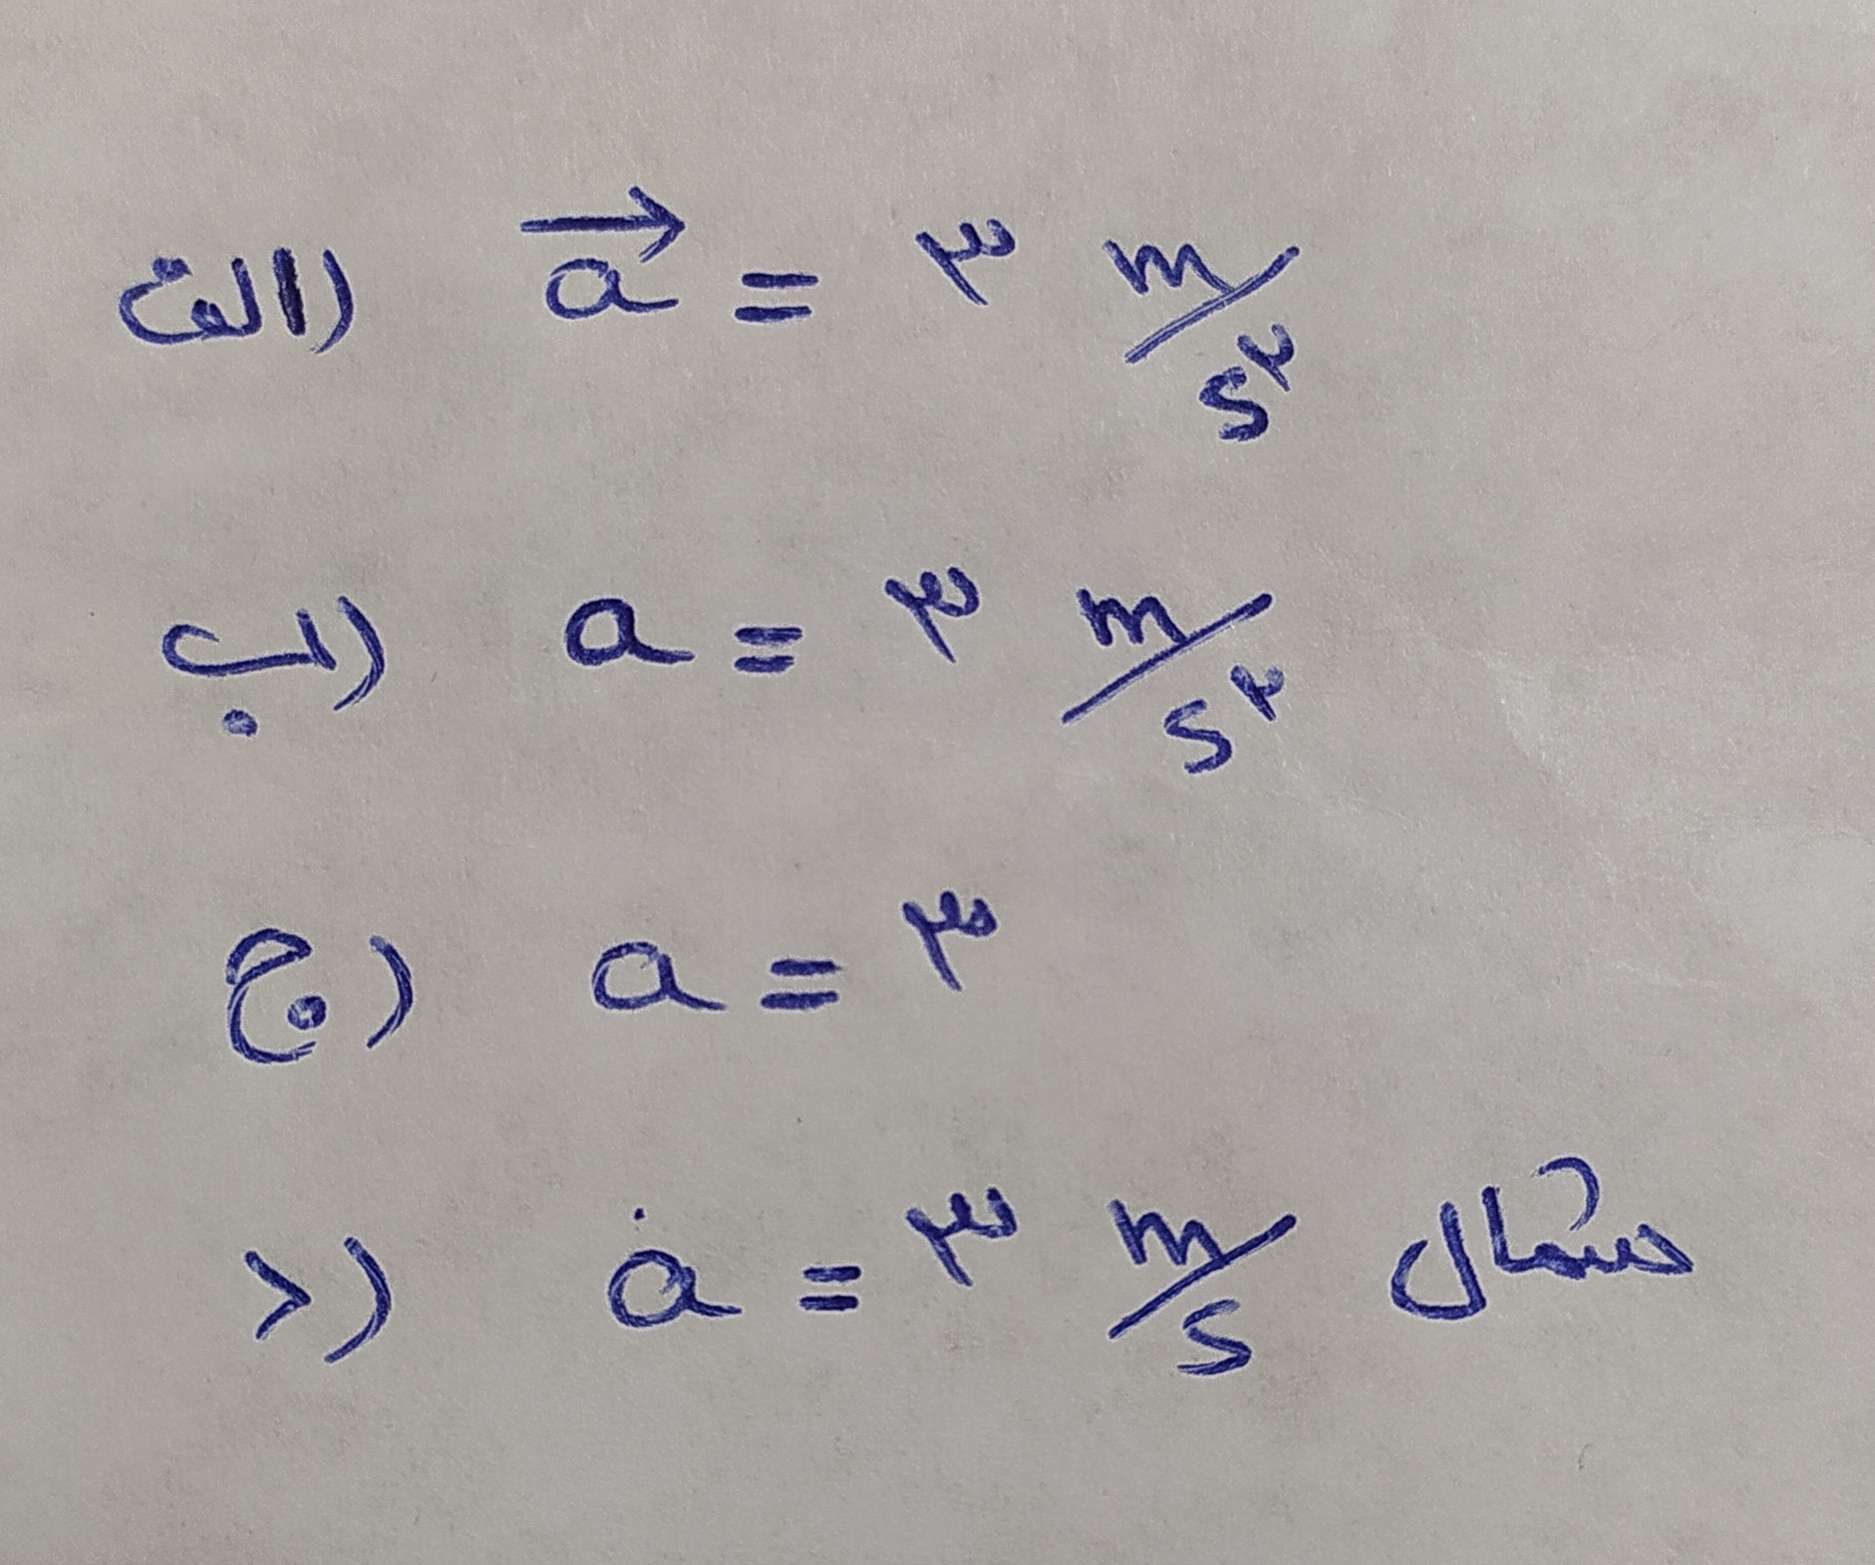 الف) a⃗ = ۳ m/s۲
ب) a = ۳ m/s۲
ج) a = ۳
د) a = ۳ m/s شمال